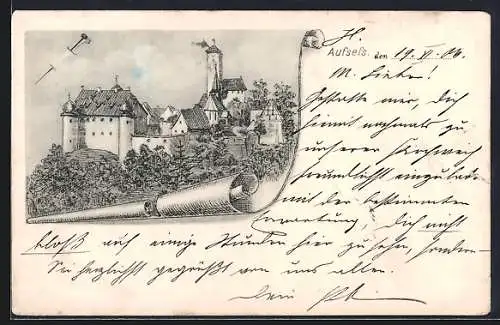 Aufseß. den 19. VI. 06.
M. Lieber!
Gestatte mir, Dich
hiermit nochmals zu
unserer Kirchweih
freundlichst einzuladen
mit der bestimmten
Erwartung, Dich nicht
bloß auf einige Stunden hier zu sehen, sondern
Sei herzlichst gegrüßt von uns allen.
Dein